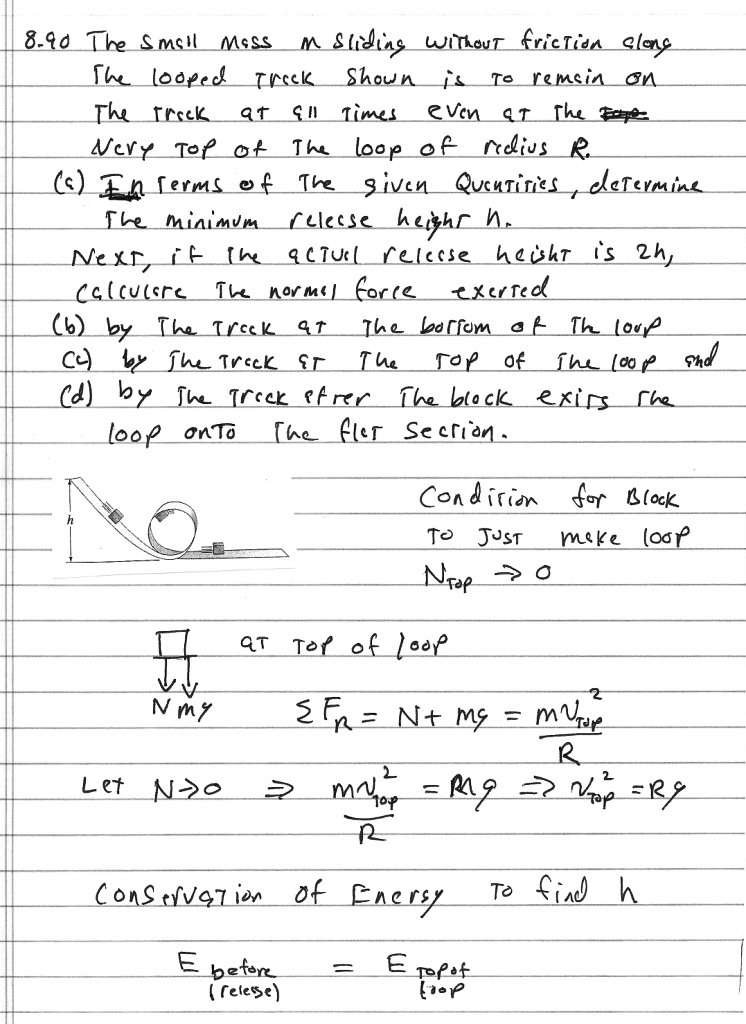 8-90 The small mass m sliding without friction along
The looped track shown is to remain on
The track at all times even at the
very top of the loop of radius R.
(a) In terms of the given quantities, determine
The minimum release height h.
Next, if the actual release height is 2h,
calculate the normal force exerted
(b) by the track at the bottom of the loop
(c) by the track at the top of the loop and
(d) by the track after the block exits the
loop onto the flat section.
h
Condition for Block
to just make loop
N_Top → 0
at top of loop
N mg
Σ F_R = N + mg = mv_Top² / R
Let N→0 ⇒ mv_Top² / R = mg ⇒ v_Top² = Rg
Conservation of Energy to find h
E before (release) = E top of loop